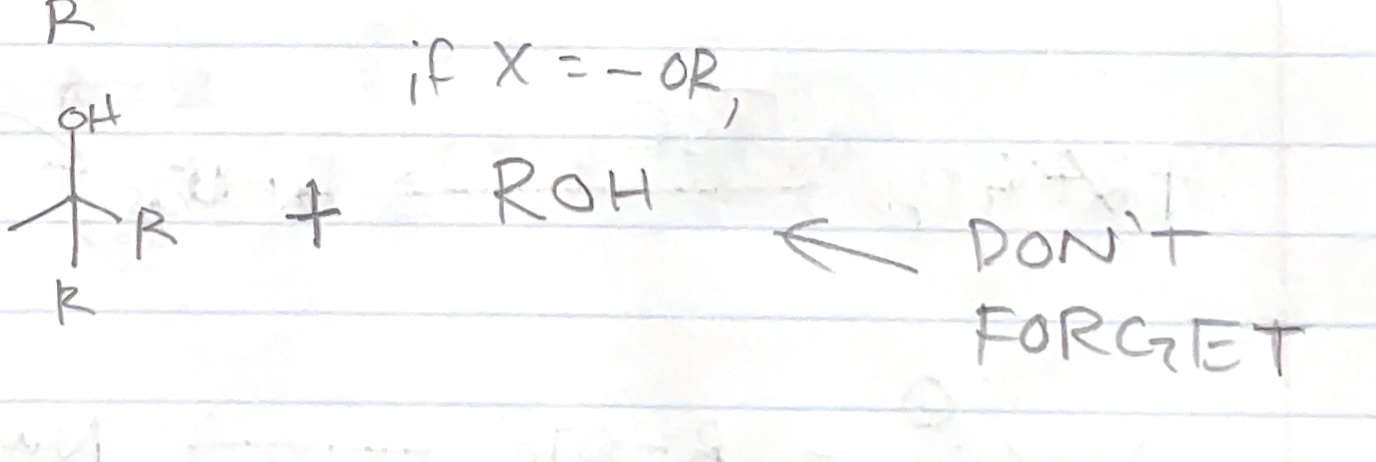 R
if X = - OR,
OH
R + ROH
R
← DON'T
FORGET